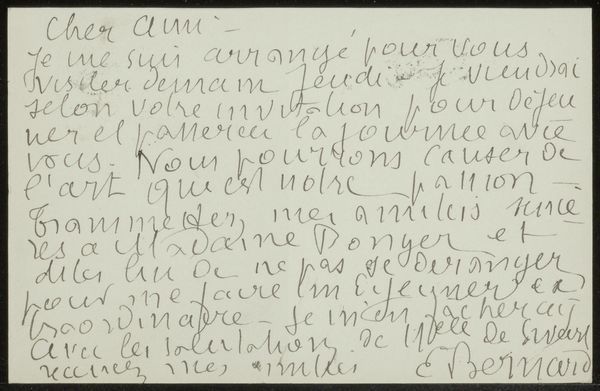 Cher ami -
Je me suis arrangé pour vous
visiter demain jeudi - Je viendrai
selon votre invitation pour déjeu
ner et passerai la journée avec
vous. Nous pourrons causer de
l'art qui est notre passion -
transmettez mes amitiés sincè
res a Madame Bonger et
dites lui de ne pas se déranger
pour me faire un déjeuner ex
traordinaire - Je m'en fâcherais
Avec les salutations de Melle de
recevez mes amitiés E Bernard